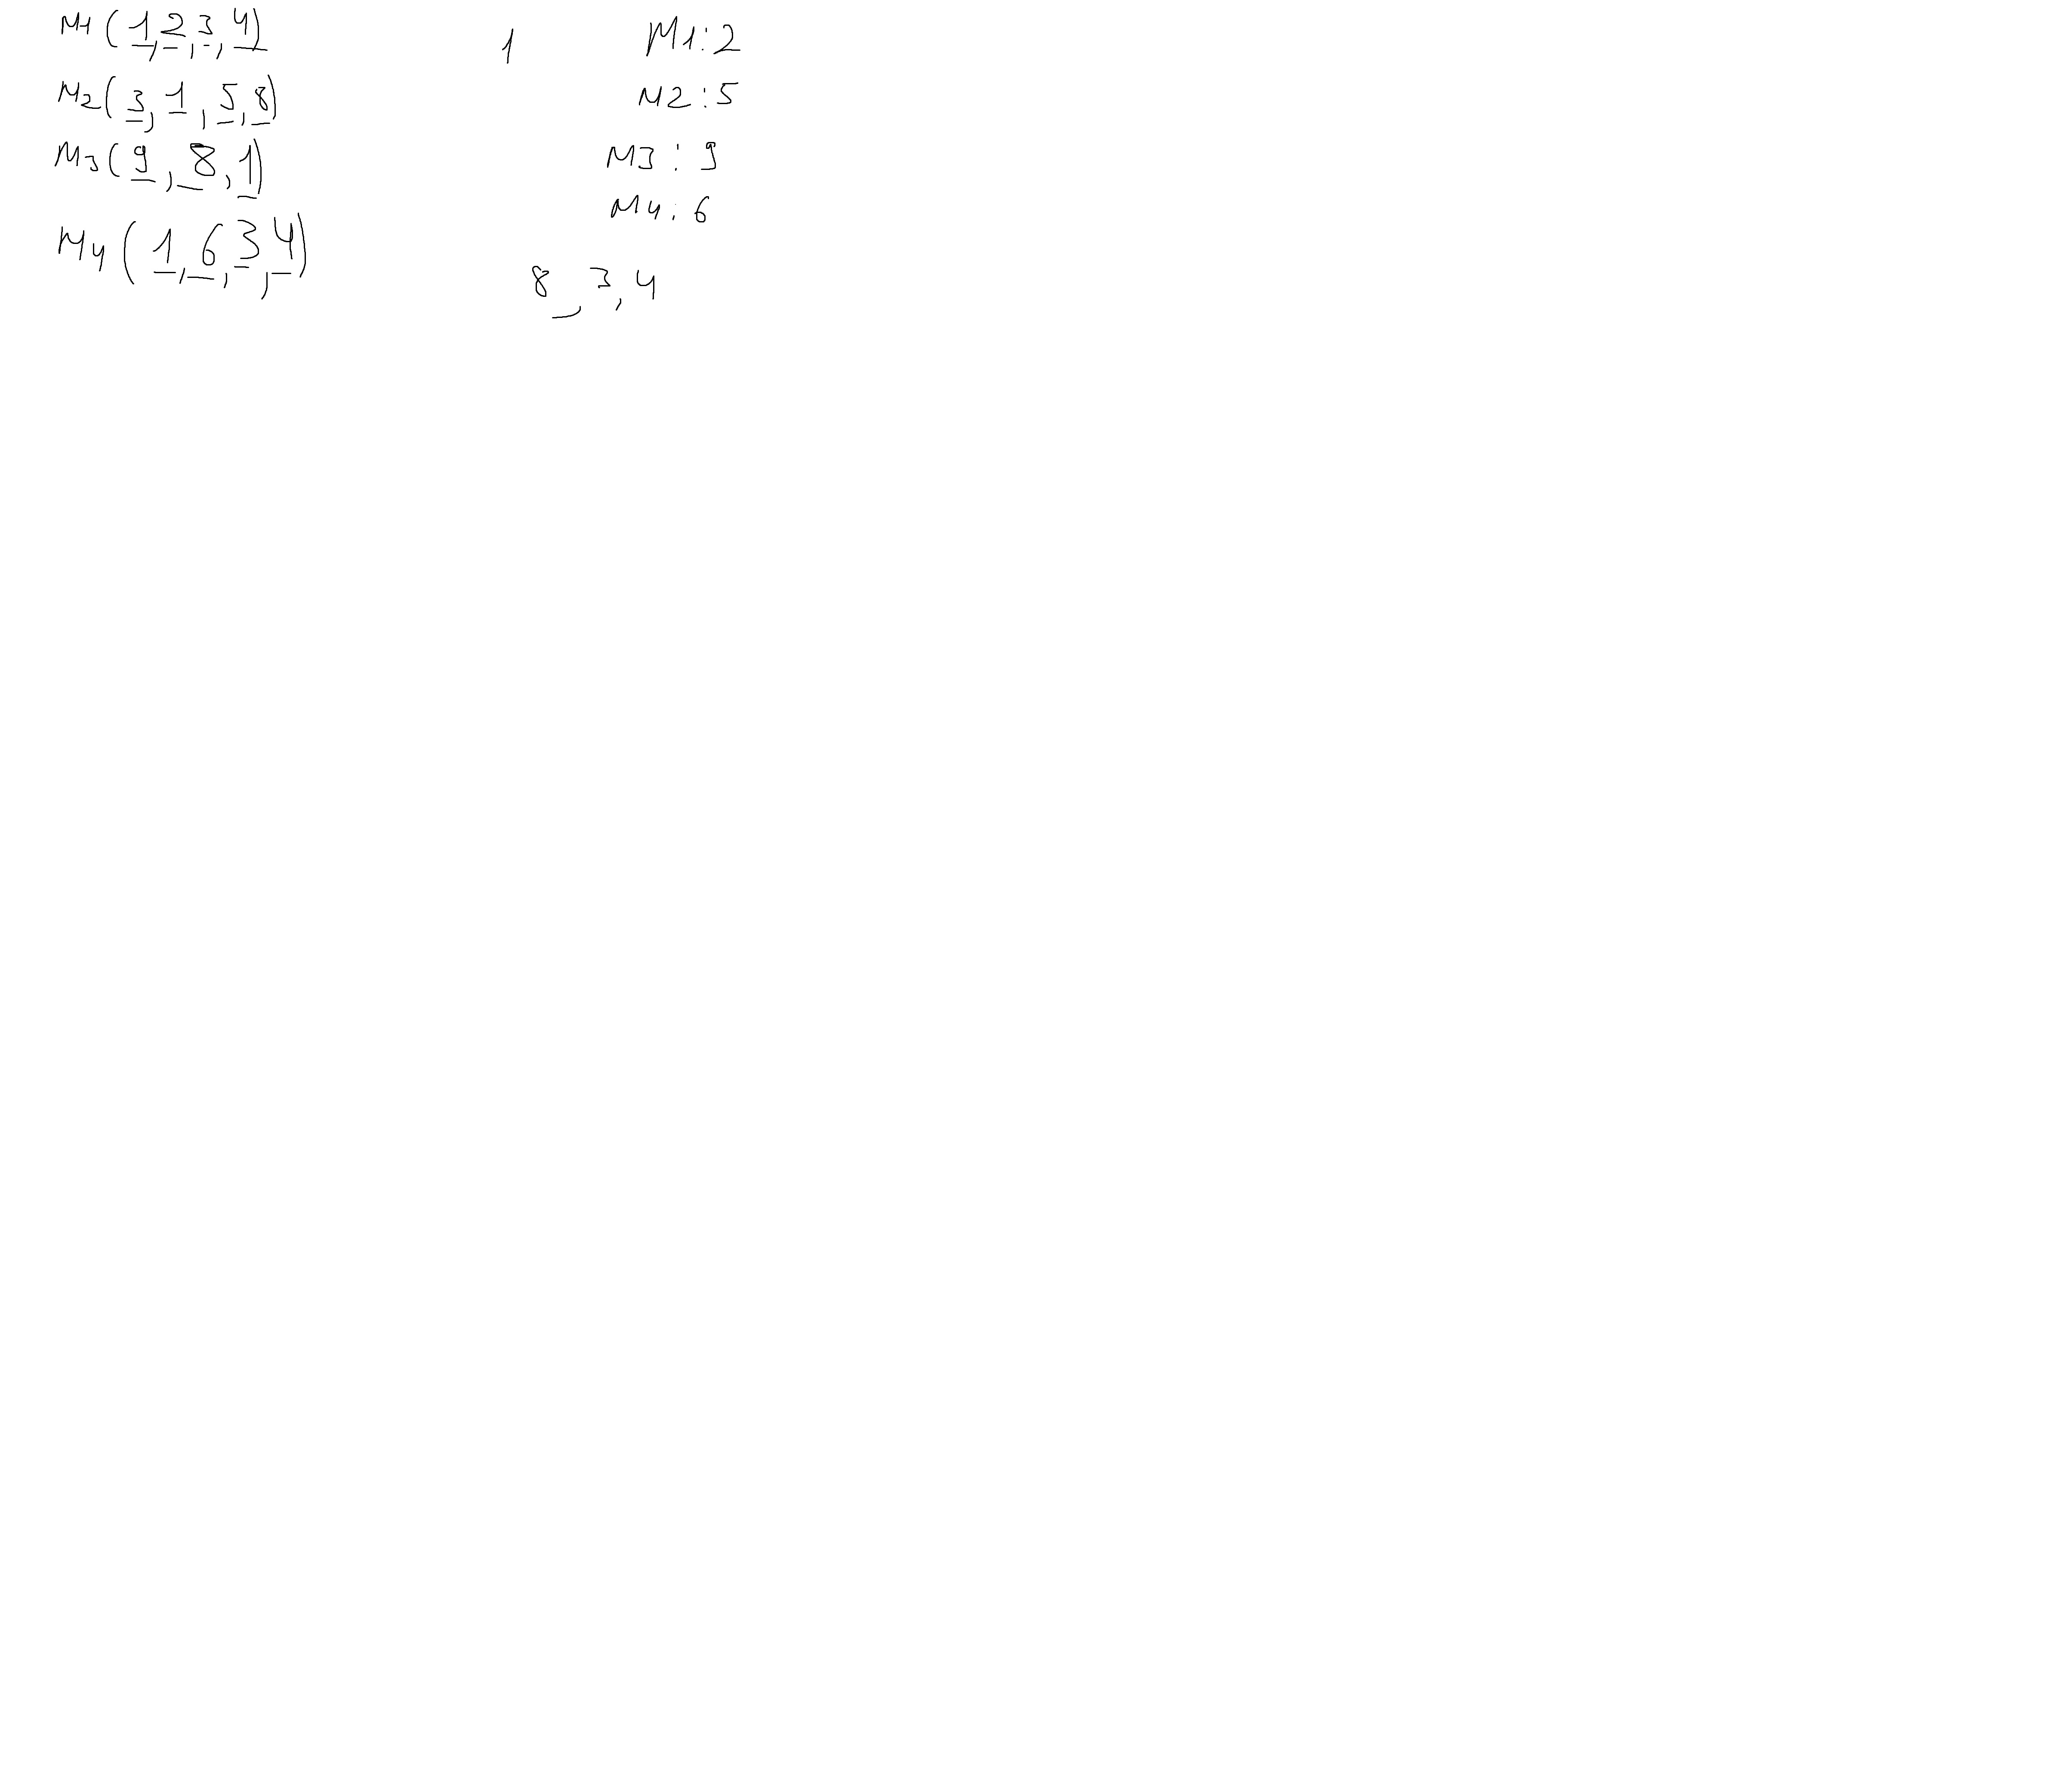 M1 (1,2,3,4)
M2 (3,1,5,8)
M3 (9,8,1)
M4 (1,6,3,4)
1
M1:2
M2:5
M3:9
M4:6
8,3,4